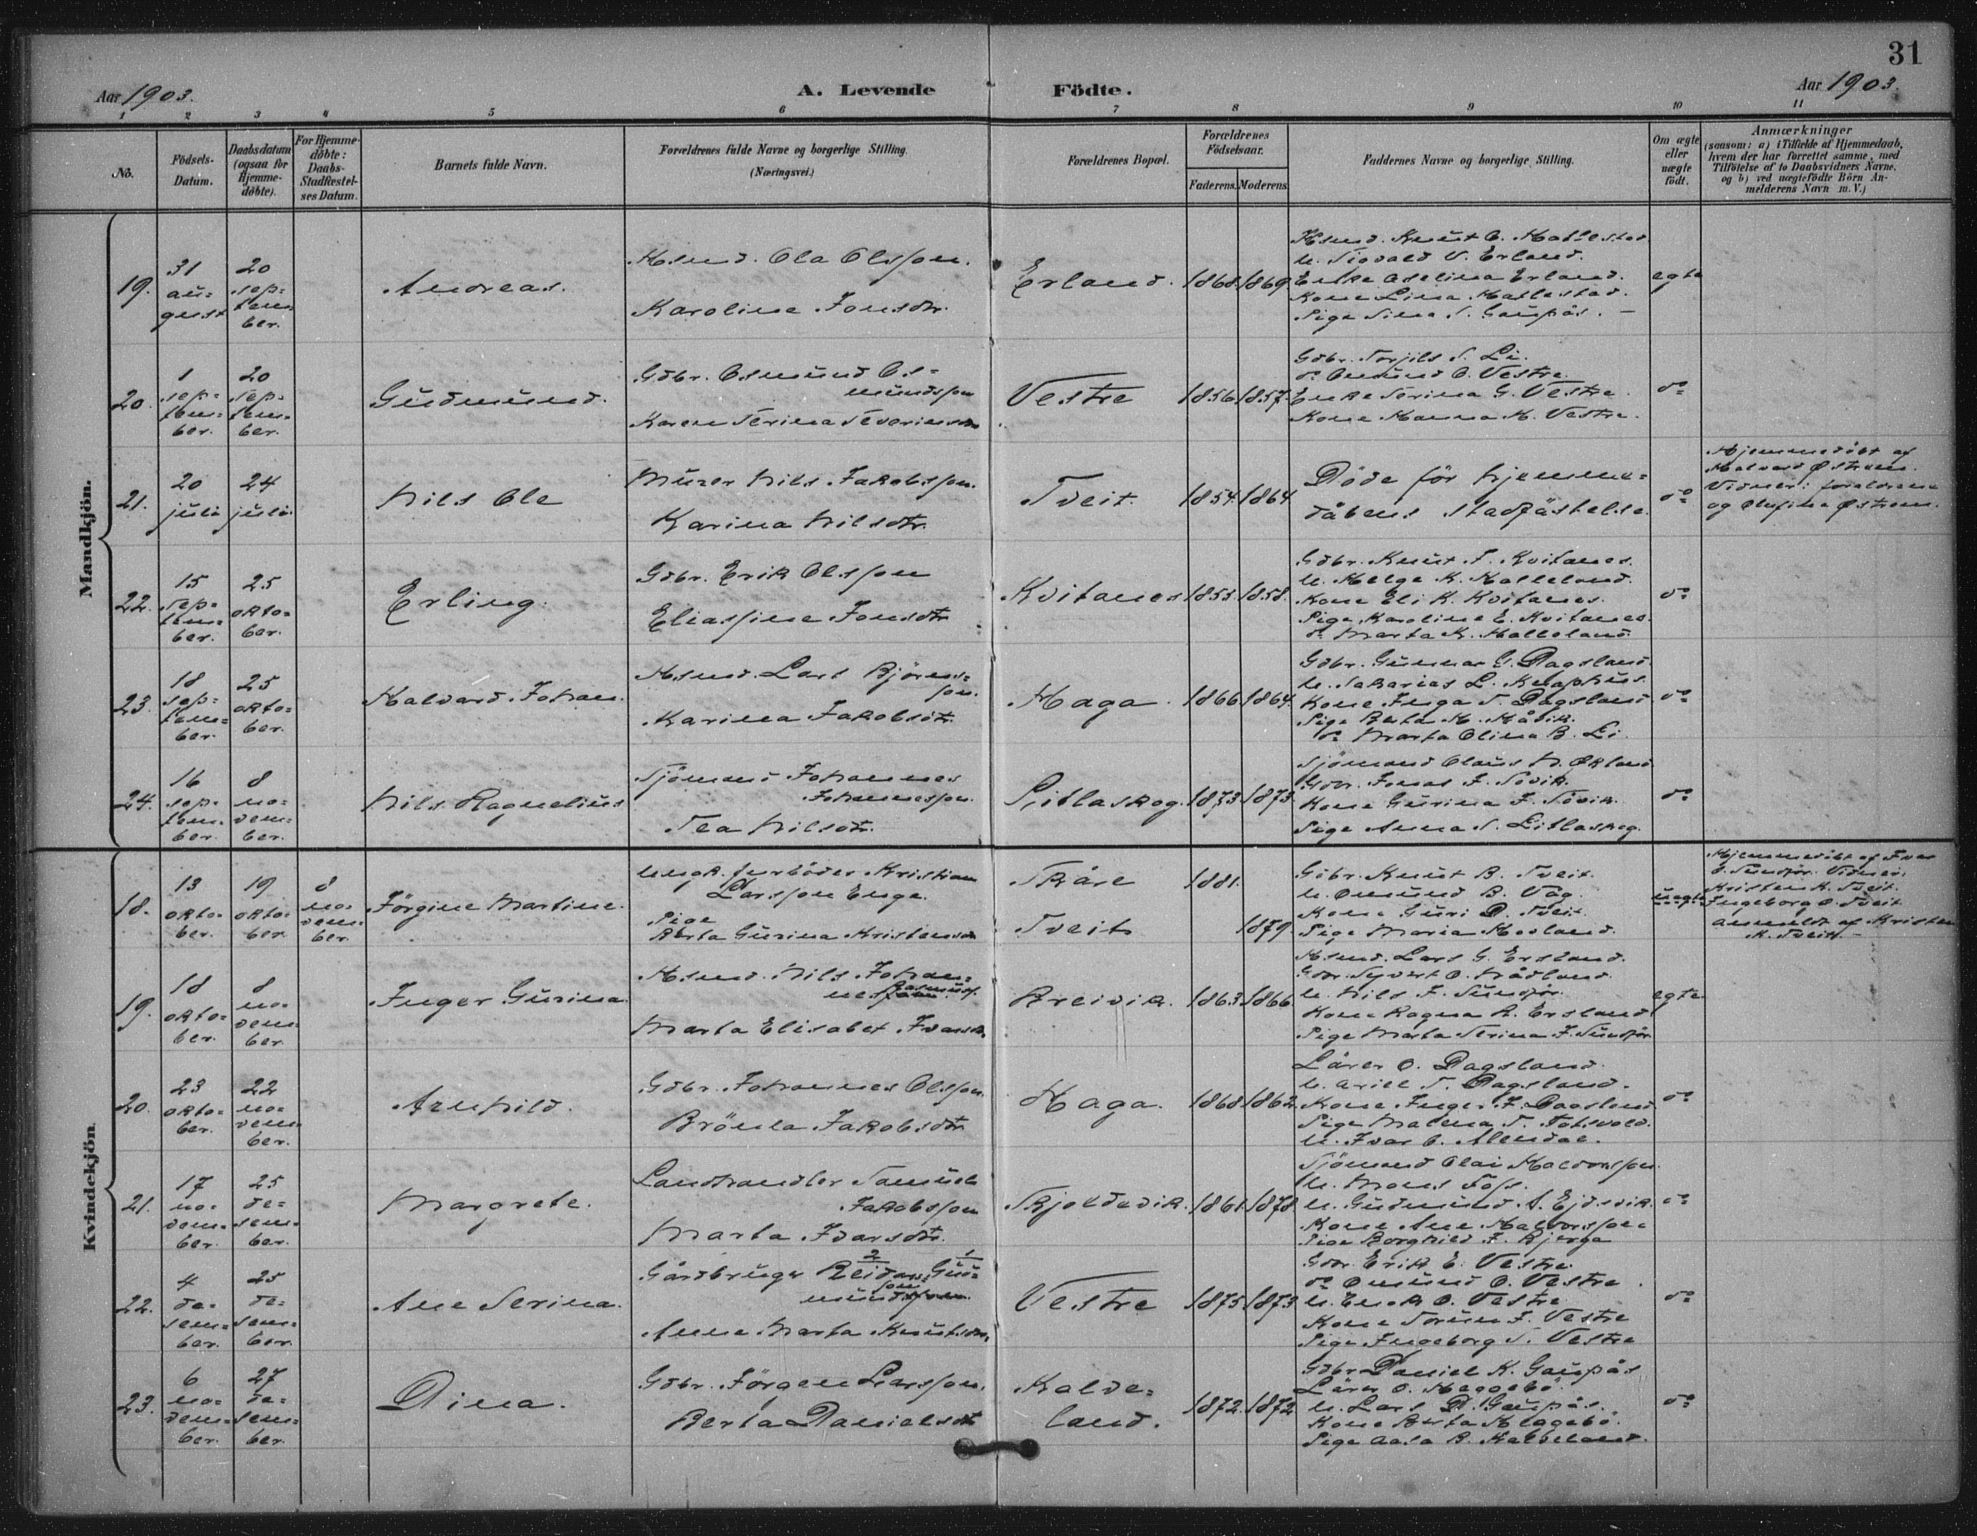 31
Aar 1903.
A. Levende Födte.
Aar 1903.
1 2 3 4 5 6 7 8 9 10 11
No.
Födsels-
Datum.
Daabsdatum
(ogsaa for
Hjemme-
döbte).
For Hjemme-
döbte:
Daabs-
Stadfæstel-
ses Datum.
Barnets fulde Navn.
Forældrenes fulde Navne og borgerlige Stilling.
(Næringsvei.)
Forældrenes Bopæl.
Forældrenes
Födselsaar.
Faderens. Moderens.
Faddernes Navne og borgerlige Stilling.
Om ægte
eller
uægte
födt.
Anmærkninger
(saasom: a) i Tilfælde af Hjemmedaab,
hvem der har forrettet samme, med
Tilföielse af to Daabsvidners Navne,
og b) ved uægtefödte Börn An-
melderens Navn m. V.)
Mandkjön.
19.
31
au-
gust
20
sep-
tem-
ber.
Andreas.
Hsmd. Ola Olsson.
Karoline Jonsdtr.
Erland.
1868 1869
Hsmd. Knut O. Hallestad
U. Sigvald V. Erland.
Enke Aselina Erland.
Kone Lina Hallestad.
Pige Sina S. Gaupås.
egte
20.
1
sep-
tem-
ber.
20
sep-
tem-
ber.
Gudmund.
Gdbr. Osmund Os-
mundsson
Karen Serina Severinsdtr
Vestre
1856 1857
Gdbr. Torjils S. Li.
do Omund O. Vestre.
Enke Serina G. Vestre.
Kone Hanna H. Vestre.
do
21.
20
juli
24
juli.
Nils Ole
Murer Nils Jakobsson.
Karina Nilsdtr.
Tveit.
1854 1864
Döde för hjemme-
dåbens stadfästelse.
do
Hjemmedöbt af
Halvard Östrem.
Vidner: foreldrene
og Olufine Östrem.
22.
15
sep-
tem-
ber.
25
okto-
ber.
Erling.
Gdbr. Erik Olsson
Eliassine Jonsdtr
Kvitanes
1855. 1858.
Gdbr. Knut J. Kvitanes.
U. Helge K. Halleland.
Kone Eli K. Kvitanes.
Pige Karoline E. Kvitanes.
do Marta K. Halleland.
do
23.
18
sep-
tem-
ber.
25
okto-
ber.
Halvard Johan.
Hsmd. Lars Björns-
son.
Karina Jakobsdtr.
Haga.
1866 1864
Gdbr. Gunnar G. Dagsland
U. Sakarias L. Knaphus.
Kone Inga T. Dagsland
Pige Berta H. Håvik.
do Marta Olina B. Li.
do
24.
16
sep-
tem-
ber.
8
no-
vem-
ber.
Nils Magnelius
Sjömand Johannes
Johannesson.
Tea Nilsdtr.
Litlaskog.
1873 1873
Sjömand Claus N. Økland
Gdbr. Jonas J. Sövik.
Kone Gurina J. Sövik.
Pige Anna S. Litlaskog.
do
Kvindekjön.
18.
13
okto-
ber.
19
okto-
ber.
8
no-
vem-
ber.
Jörgine Martine.
Ungk. furböder Kristian
Larsson Enge.
Pige
Berta Gurina Kristensdtr
Skåre
Tveit
1881.
1879.
Gdbr. Knut B. Tveit.
U. Omund B. Våg.
Kone Guri D. Tveit.
Pige Maria Hovland.
uegte
Hjemmedöbt af Ivar
O. Sundför. Vidner:
Kristen K. Tveit.
Ingeborg O. Tveit.
Anmeldt af Kristen
K. Tveit.
19.
18
okto-
ber.
8
no-
vem-
ber.
Inger Gurina
Hsmd. Nils Johan-
nesson.
Marta Elisabet Ivarsdtr.
Breivik.
1863 1866
Hsmd. Lars G. Ersland.
Gdbr. Syvert O. Nådland.
U. Nils J. Sundför.
Kone Ragna R. Ersland
Pige Marta Serina J. Sundför.
egte.
20.
23
okto-
ber.
22
no-
vem-
ber.
Arnhild.
Gdbr. Johannes Olsson.
Brönla Jakobsdtr
Haga.
1868 1862
Lärer O. Dagsland.
U. Ariel T. Dagsland.
Kone Inger J. Dagsland
Pige Malena T. Totsvold.
U. Ivar O. Alendal.
do
21.
17
no-
vem-
ber.
25
de-
sem-
ber.
Margrete.
Landhandler Samuel
Jakobsson
Marta Ivarsdtr.
Skjoldevik.
1861 1878
Sjömand Olai Halvorsson.
U. Mons Foss.
U. Gudmund A. Ejdsvik.
Kone Ane Halvorsson.
Pige Borghild J. Bjerga
do
22.
4
de-
sem-
ber.
25
de-
sem-
ber.
Ane Serina.
Gårdbruger Reidar Gud-
mundsson.
Anna Marta Knutsdtr.
Vestre
1875 1873
Gdbr. Erik E. Vestre
do Omund O. Vestre.
U. Enok O. Vestre.
Kone Torun J. Vestre
Pige Ingeborg S. Vestre
do
23.
6
no-
vem-
ber.
27
de-
sem-
ber.
Dina.
Gdbr. Jörgen Larsson.
Berta Danielsdtr
Kalve-
land.
1872. 1872
Gdbr. Daniel K. Gaupås
Lärer O. Heggebö.
U. Lars D. Gaupås.
Kone Berta Heggebö.
Pige Aasa B. Kalveland.
do